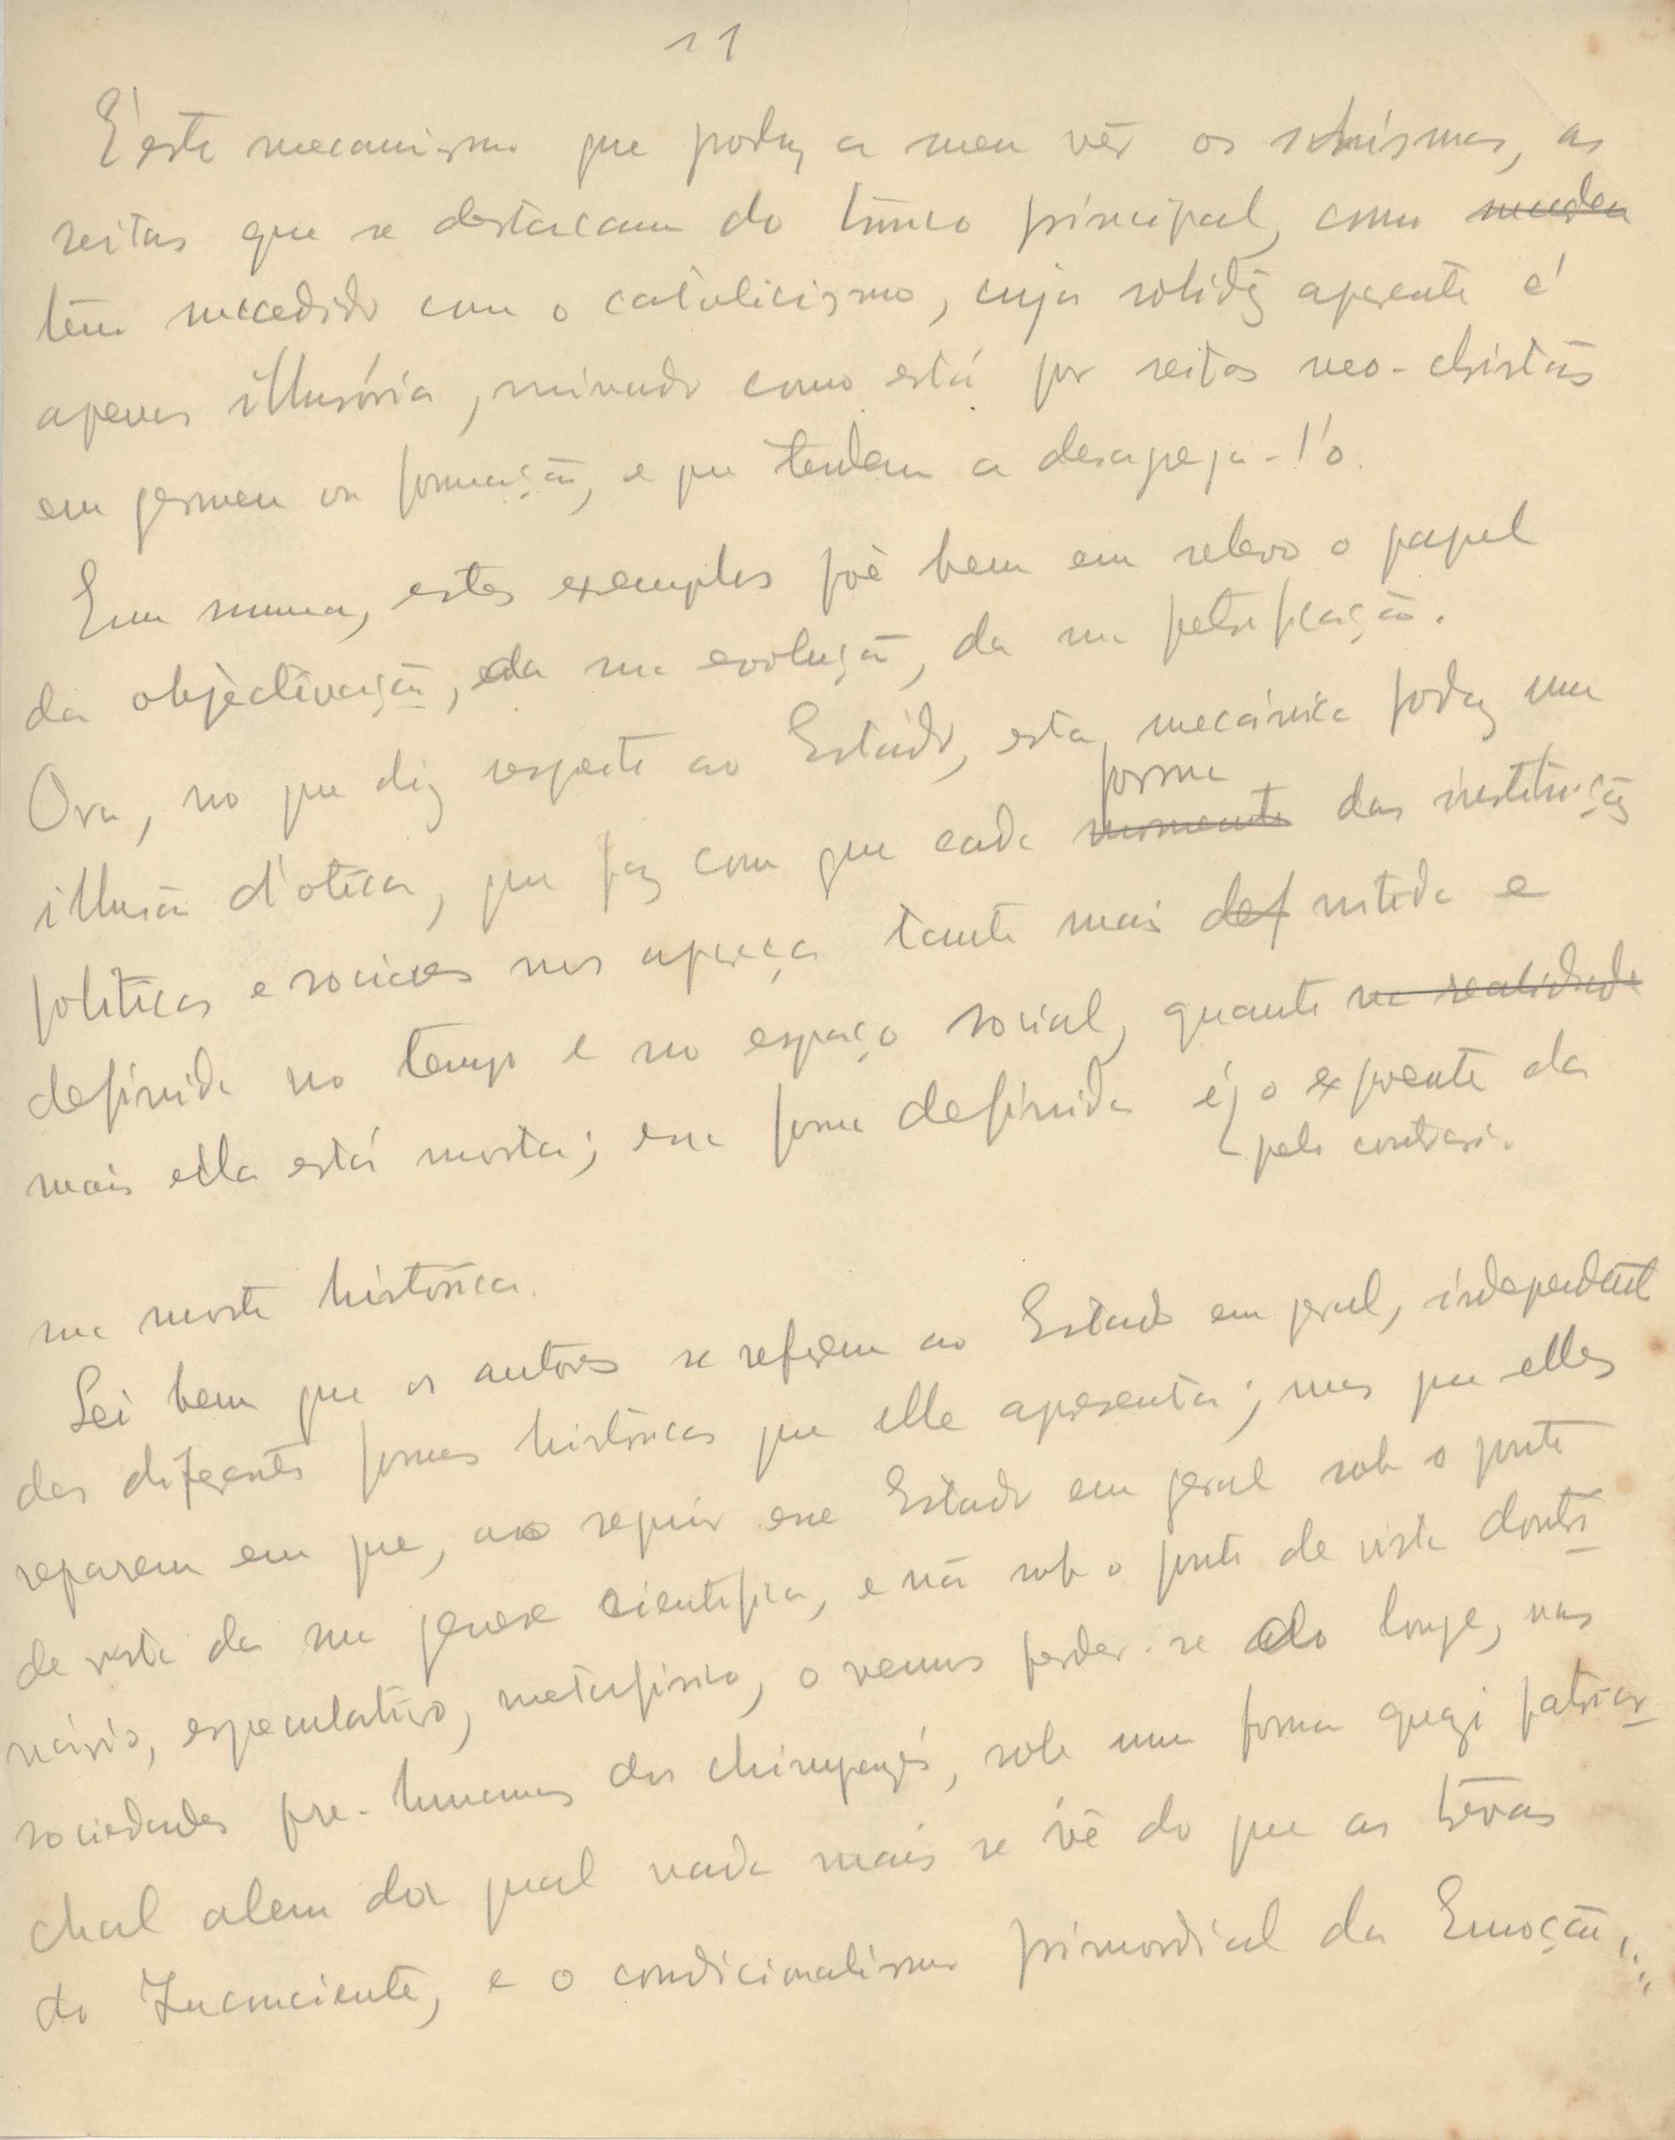 11
É este mecanismo que produz a meu vêr os schismas, as
seitas que se destacam do tronco principal, como
têm succedido com o catolicismo, cuja solidez aparente é
apenas illusória, minado como está por seitas neo-christãs
em germen ou formação, e que tendem a desagrega-l'o.
Em summa, estes exemplos põe bem em relevo o papel
da objèctivação, da sua evolução, da sua petrificação.
Ora, no que diz respeito ao Estado, esta mecánica produz uma
forma
illusão d'otica, que faz com que cada momento das instituições
politicas e sociaes nos apareça tanto mais def nitida e
definida no tempo e no espaço social, quanto na realidade
mais ella está morta; essa forma definida é, o expoente da
pelo contrario.
sua morte histórica.
Sei bem que os autores se referem ao Estado em geral, independente
das diferentes formas históricas que elle apresenta; mas que elles
reparem em que, ao seguir esse Estado em geral sob o ponto
de vista da sua genese cientifica, e não sob o ponto de vista doutri-
nário, especulativo, metafisico, o vemos perder-se ao longe, nas
sociedades pre-humanas dos chimpanzés, sob uma forma quazi patriar-
chal alem da qual nada mais se vê do que as trevas
do Inconciente, e o condicionalismo primordial da Emoção!...